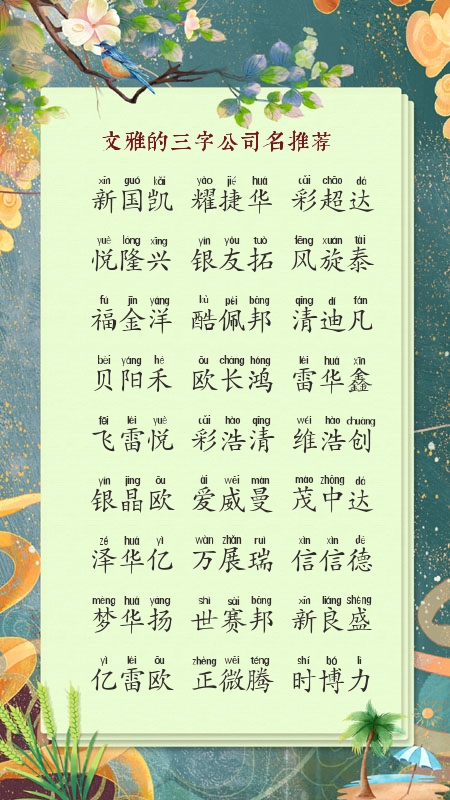 文雅的三字公司名推荐
xīn guó kǎi yào jié huá cǎi chāo dá
新国凯 耀捷华 彩超达
yuè lóng xīng yín yǒu tuò fēng xuán tài
悦隆兴 银友拓 风旋泰
fú jīn yáng kù pèi bāng qīng dí fán
福金洋 酷佩邦 清迪凡
bèi yáng hé ōu cháng hóng léi huá xīn
贝阳禾 欧长鸿 雷华鑫
fēi léi yuè cǎi hào qīng wéi hào chuàng
飞雷悦 彩浩清 维浩创
yín jīng ōu ài wēi màn mào zhōng dá
银晶欧 爱威曼 茂中达
zé huá yì wàn zhǎn ruì xìn xìn dé
泽华亿 万展瑞 信信德
mèng huá yáng shì sài bāng xīn liáng shèng
梦华扬 世赛邦 新良盛
yì léi ōu zhèng wēi téng shí bó lì
亿雷欧 正微腾 时博力